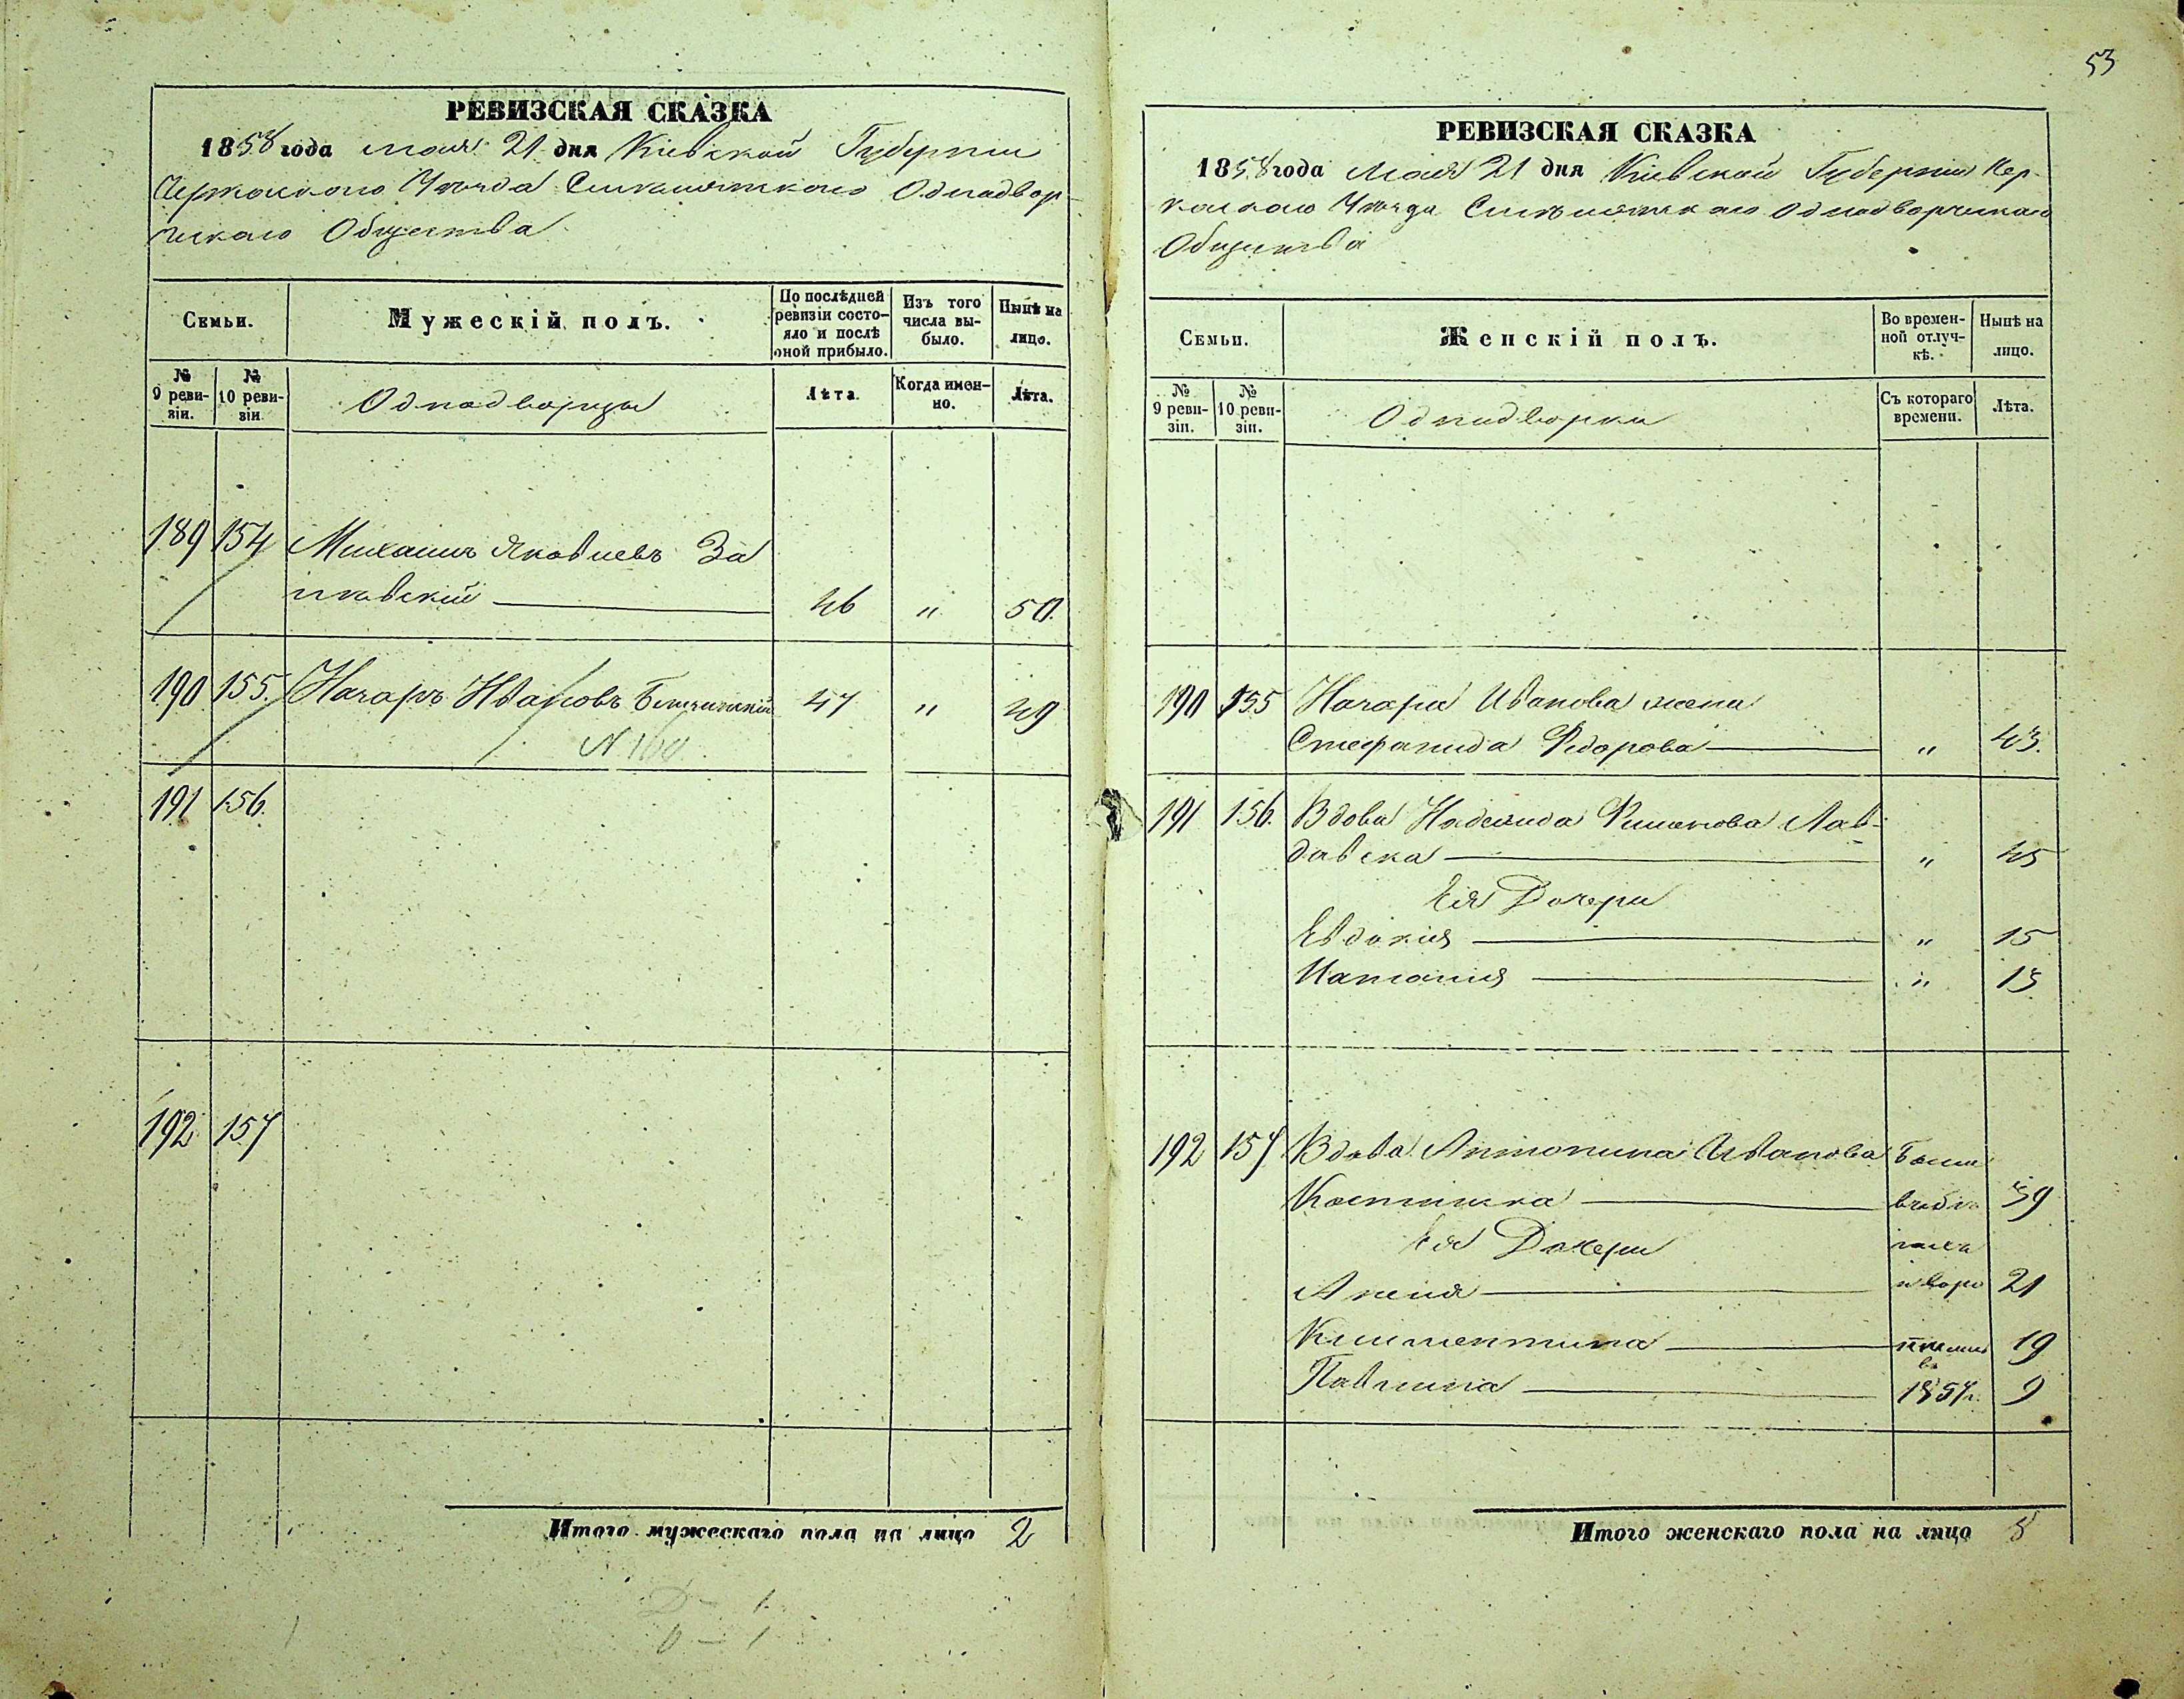 53
РЕВИЗСКАЯ СКАЗКА
1858 года мая 21 дня Кіевской Губерніи
Черкаского Уѣзда Однодвор-
ческаго Общества
Семьи.
Мужескій полъ.
По послѣдней ревизіи состо-яло и послѣ оной прибыло.
Изъ того числа вы-было.
Нынѣ на лицо.
№ 9 реви-зіи.
№ 10 реви-зіи
Однодворцы
Лѣта
Когда имен-но.
Лѣта.
189 154 Михаилъ Яковлевъ За
46 " 50.
190 155. Ивановъ 47 " 49
N 160
191 156.
192 157
Итого мужескаго пола на лицо 2
РЕВИЗСКАЯ СКАЗКА
1858 года Мая 21 дня Кіевской Губерніи Чер-
каскаго Уѣзда Однодворческаго
Общества
Семьи.
Женскій полъ.
Во времен-ной отлуч-кѣ.
Нынѣ на лицо.
№ 9 реви-зіи.
№ 10 реви-зіи.
Однодворки
Съ котораго времени.
Лѣта.
190 155 Иванова жена
Стефанида Федорова " 43.
191 156. Вдова Надежда Лав-
" 45
Ея Дочери
Евдокія " 15
Наталія " 13
192 157 Вдова Антонина Иванова
39
Ея Дочери
21
Климентина 19
въ
Павлина 1857г. 9
Итого женскаго пола на лицо 8